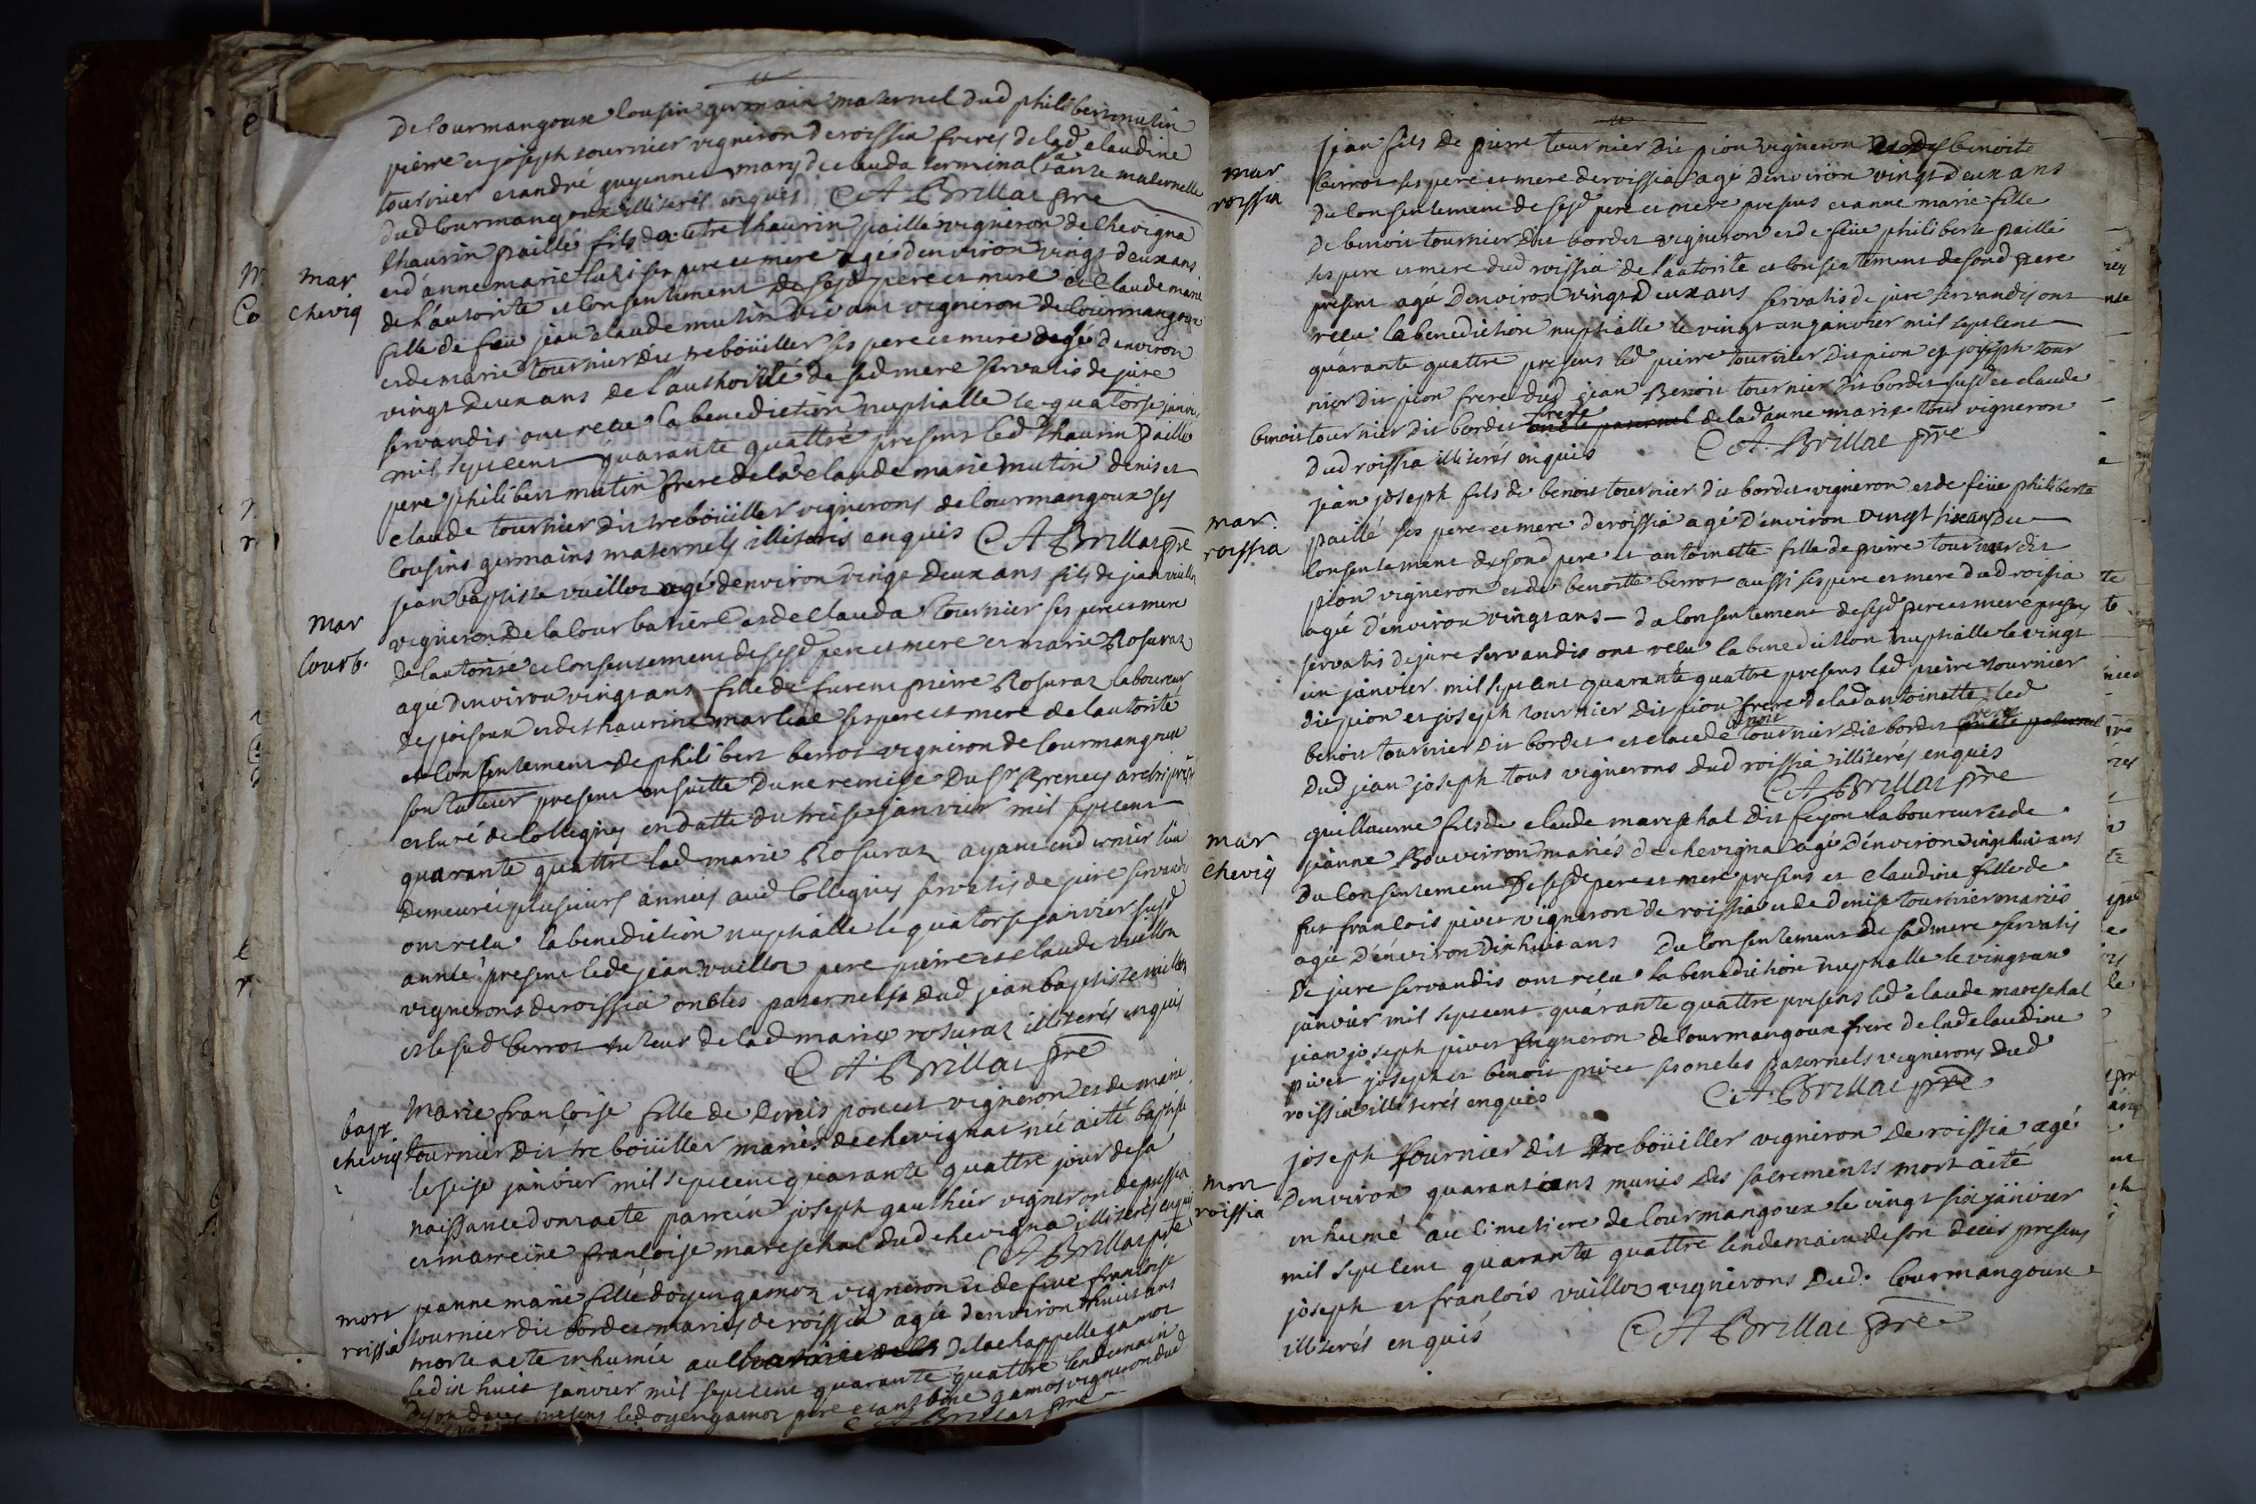 De Courmangoux Cousin germain maternel dud philibert mutin
pierre et joseph tournier vigneron de roissia freres de lad claudine
tournier et andré guyennet mary de clauda terminal tante maternelle
dud Courmangoux illiterés enquis C A Brillat pre
mar
chevig
thaurin paillé fils de thaurin paille vigneron de Chevigna
et d'anne marie ses pere et mere agé d'environ vingt deux ans
de l'autorité et Consentement de sesd pere et mere et Claude marie
fille de feu jean claude mutin vivant vigneron de Courmangoux
et de marie tournier dit trebouiller ses pere et mere agée d'environ
vingt deux ans de l'authorité de sad mere servatis de jure
servandis ont recu la benediction nuptialle le quatorse janvi
mil sept cent quarante quattre presens led thaurin paillé
pere philibert mutin frere de lad claude marie mutin denis et
claude tournier dit trebouiller vignerons de Courmangoux ses
Cousins germains maternels illiterés enquis C A Brillat pre
mar
Courb.
jean baptiste vuillot agé d'environ vingt deux ans fils de jean vuillot
vigneron de la Courbatiere et de Clauda tournier ses pere et mere
de l'autorité et Consentement de sesd pere et mere et marie Rosuraz
agée d'environ vingt ans fille de furent pierre Rosuraz laboureur
des poisoux et de thaurine martine ses pere et mere de l'autorité
et Consentement de philibert berrot vigneron de Courmangoux
son tuteur present en suitte d'une remise du Sr Brenery archipretre
et Curé de Collegny en datte du treise janvier mil sept cent
quarante quattre lad marie Rosuraz ayant en dernier lieu
demeurée plusieurs années aud Collegny servatis de jure servandis
ont recu la benediction nuptialle le quatorse janvier susd
année present led jean vuillot pere pierre et claude vuillot
vignerons de roissia oncles paternels dud jean baptiste vuillot
et le sud berrot tuteur de lad marie rosuraz illiterés enquis
C A Brillat pre
bapt
chevig
Marie francoise fille de denis poncet vigneron et de marie
tournier dit trebouiller mariés de chevigna née a eté baptisée
le seise janvier mil sept cent quarante quattre jour de sa
naissance dont a eté parrein joseph gauthier vigneron de pressia
et marreine francoise mareschal dud chevigna illiterés enquis
C A Brillat pre
mort
roissia
jeanne marie fille d'oyen gamoz vigneron et de feue francoise
tournier dit bordet mariés de roissia agée d'environ huit ans
morte a eté inhumée au de la chappelle gamoz
le dix huit janvier mil sept cent quarante quattre lendemain
de son deces presens led oyen gamoz pere et antoine gamoz vigneron dud
C A Brillat pre
mar
roissia
jean fils de pierre tournier dit pion vigneron et de benoite
berrot ses pere et mere de roissia agé d'environ vingt deux ans
du Consentement de sesd pere et mere presens et anne marie fille
de benoit tournier dit bordet vigneron et de feüe philiberte paillé
ses pere et mere dud roissia de l'autorité et Consentement de sond pere
present agée d'environ vingt deux ans servatis de jure servandis ont
recu la benediction nuptialle le vingt un janvier mil sept cent
quarante quattre presens led pierre tournier dit pion et joseph tour
nier dit pion frere dud jean Benoit tournier dit bordet susd et claude
benoit tournier dit bordet oncle paternel frere de lad anne marie tous vigneron
dud roissia illiterés enquis C A Brillat pre
mar.
roissia
jean joseph fils de benoit tournier dit bordet vigneron et de feüe philiberte
paillé ses pere et mere de roissia agé d'environ vingt six ans du
Consentement de sond pere et antoinette fille de pierre tournier dit
pion vigneron et de benoitte berrot aussi ses pere et mere dud roissia
agée d'environ vingt ans du Consentement de sesd pere et mere presens
servatis de jure servandis ont recu la benediction nuptialle le vingt
un janvier mil sept cent quarante quattre presens led pierre tournier
dit pion et joseph tournier dit pion frere de lad antoinette led
benoit tournier dit bordet et claude benoit tournier dit bordet oncle paternel frere
dud jean joseph tous vignerons dud roissia illiterés enquis
C A Brillat pre
mar
chevig
guillaume fils de claude mareschal dit feyon laboureur et de
jeanne Bouvirron mariés de chevigna agé d'environ vingt huit ans
du Consentement de sesd pere et mere presens et claudine fille de
fut francois pivet vigneron de roissia et de denise tournier mariés
agée d'environ dix huit ans du Consentement de sad mere servatis
de jure servandis ont recu la benediction nuptialle le vingt un
janvier mil sept cent quarante quattre presens led claude mareschal
jean joseph pivet vigneron de Courmangoux frere de lad claudine
pivet joseph et benoit pivet ses oncles paternels vignerons dud
roissia illiterés enquis C A Brillat pre
mort
roissia
joseph tournier dit trebouiller vigneron de roissia agé
d'environ quarante ans munis des sacrements mort a eté
inhumé au Cimetiere de Courmangoux le vingt six janvier
mil sept cent quarante quattre lendemain de son deces presens
joseph et francois vuillot vignerons dud. Courmangoux
illiterés enquis C A Brillat pre